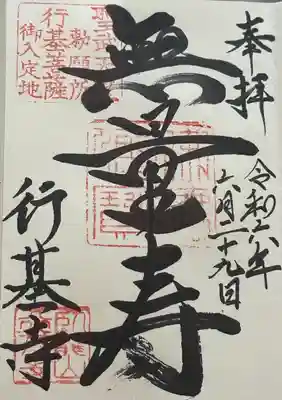 奉拝
令和六年
六月二十九日
無量寿
行基寺
勅願所
行基菩薩
御入定地